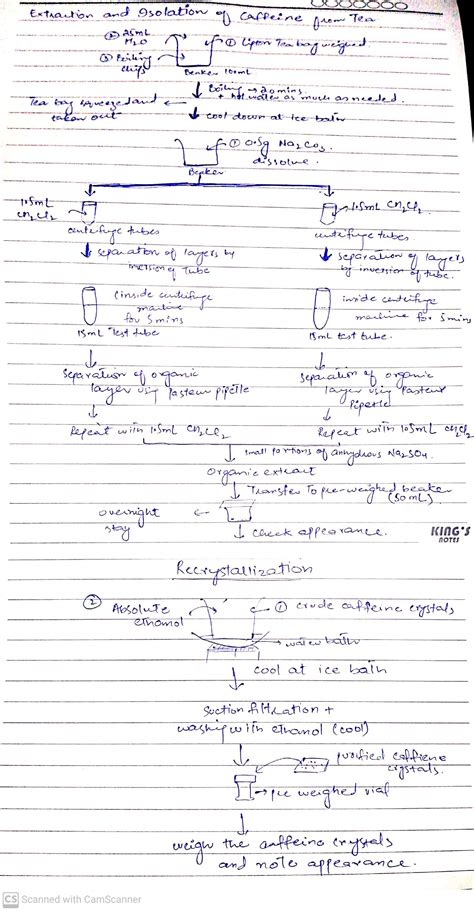 Extraction and Isolation of Caffeine from Tea
② 25mL H2O
① Lipton Tea bag weighed
③ Boiling chips
Beaker 100mL
Boiling → 20mins
+ hot water as much as needed.
Tea bag squeezed and taken out
cool down at ice bath
① 0.5g Na2CO3
dissolve.
Beaker
1.5mL CH2Cl2
1.5mL CH2Cl2
centrifuge tubes
centrifuge tubes
separation of layers by
inversion of tube
separation of layers
by inversion of tube.
(inside centrifuge
machine
for 5 mins
inside centrifuge
machine for 5 mins
15mL Test tube
15mL test tube.
Separation of organic
layer using Pasteur pipette
Separation of organic
layer using Pasteur
Pipette
Repeat with 1.5mL CH2Cl2
Repeat with 1.5mL CH2Cl2
small portions of anhydrous Na2SO4.
Organic extract
Transfer to pre-weighed beaker
(50mL)
overnight
stay
check appearance.
KING'S
NOTES
Recrystallization
② Absolute
ethanol
① crude caffeine crystals
water bath
cool at ice bath
Suction filtration +
washing with ethanol (cool)
purified caffiene
crystals.
pre weighed vial
weigh the caffeine crystals
and note appearance.
CS Scanned with CamScanner